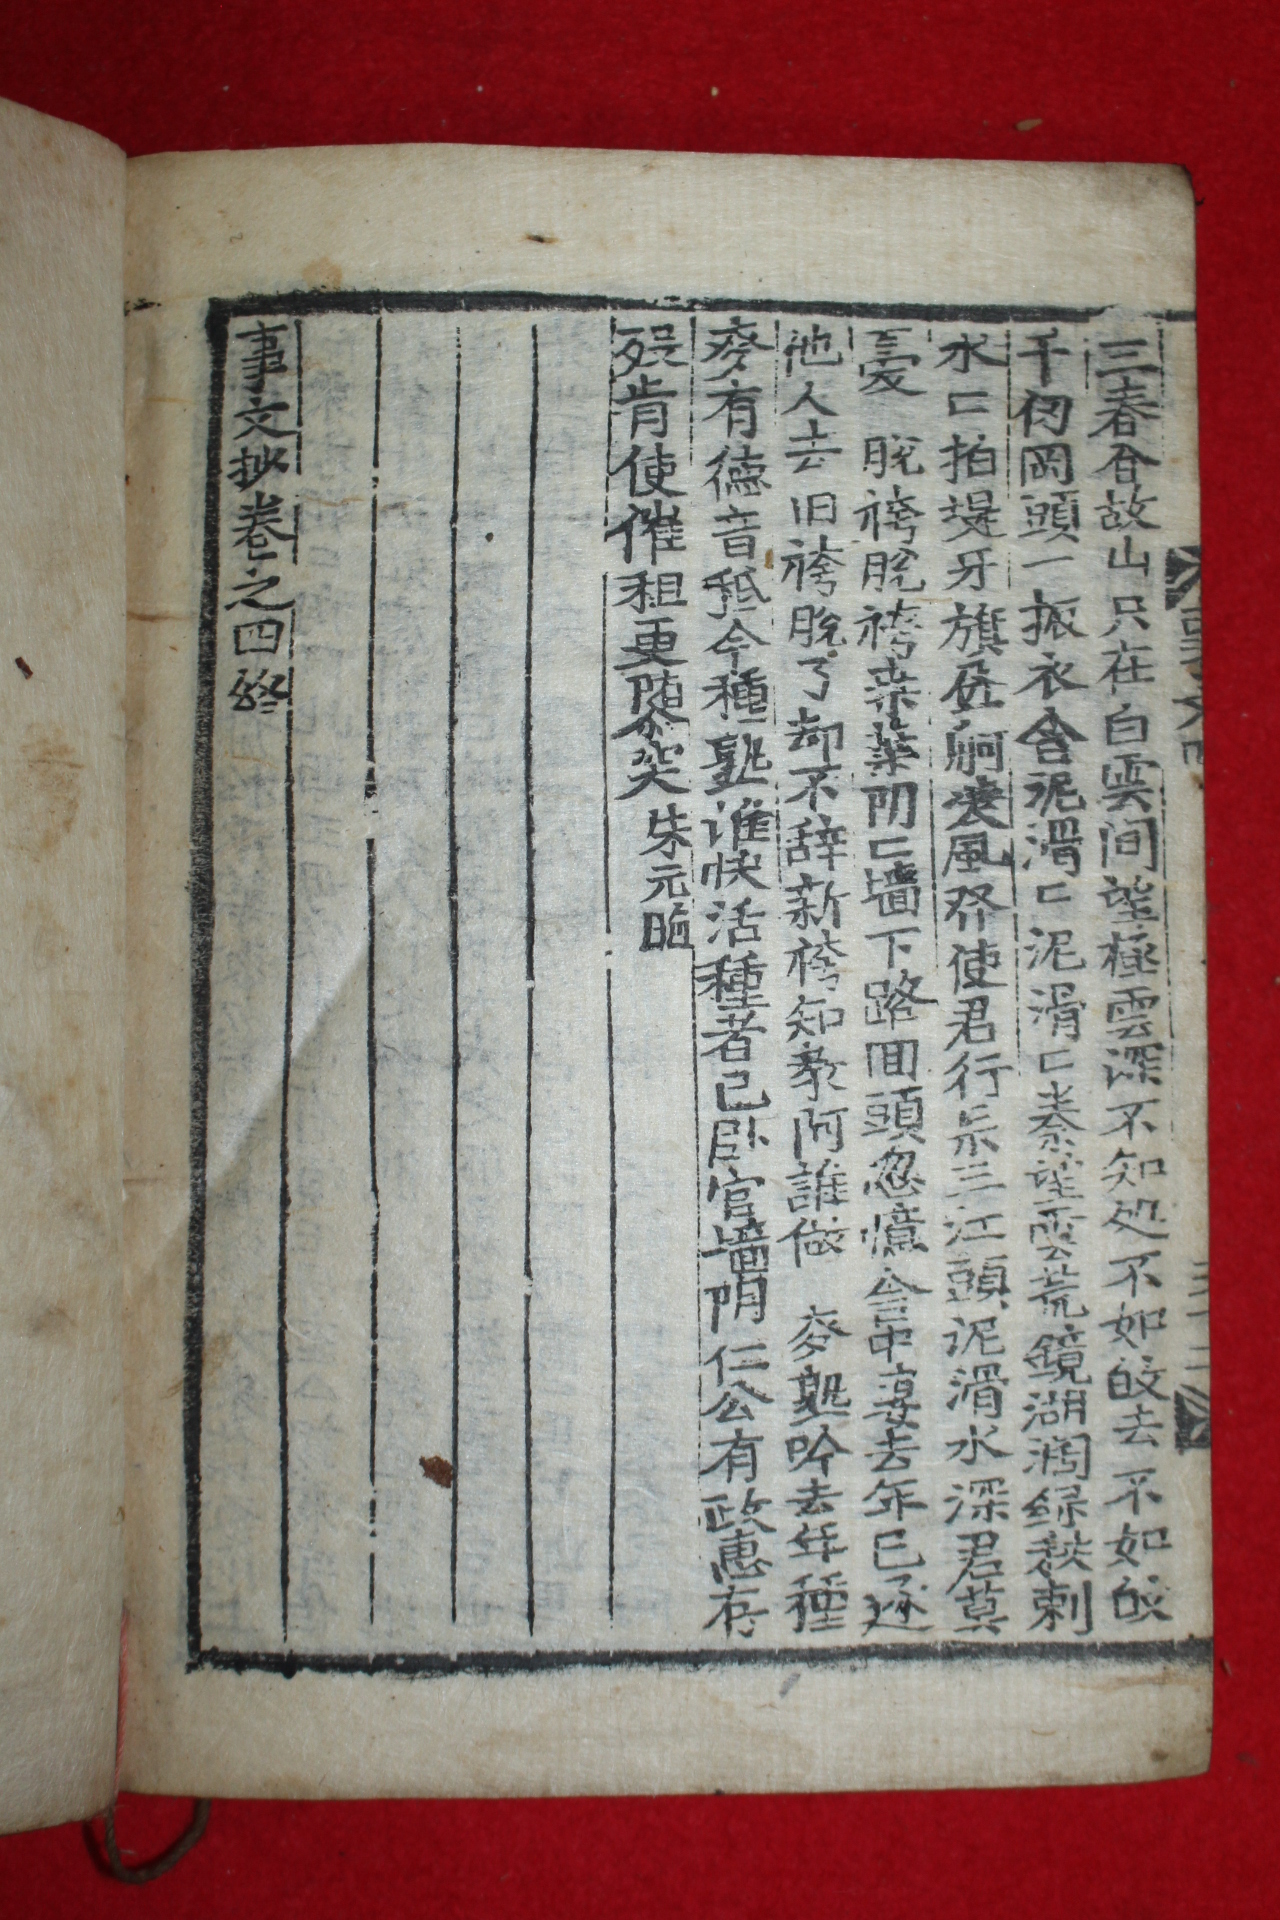 三春合故山只在白雲间望極雲深不知処不如皈去不如皈
千仞岡頭一振衣 泥滑匕泥滑匕秦望雲荒鏡湖濶緑秧刺
水匕拍堤牙旗 風舞使君行 三江頭泥滑水深君莫
憂 脫袴脫袴桒葉阴匕墙下路囬頭忽憶 中妻去年已逐
他人去旧袴脫了却不辞新袴知教阿誰做 麥塾吟去年種
麥有德音 今種塾谁快活種者已卧官墙阴仁公有政惠存
肯使催租更随 朱元晦
事文抄卷之四終
事文四
三十二